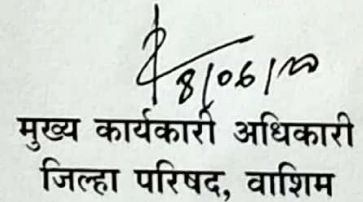 8/06/20
मुख्य कार्यकारी अधिकारी
जिल्हा परिषद, वाशिम